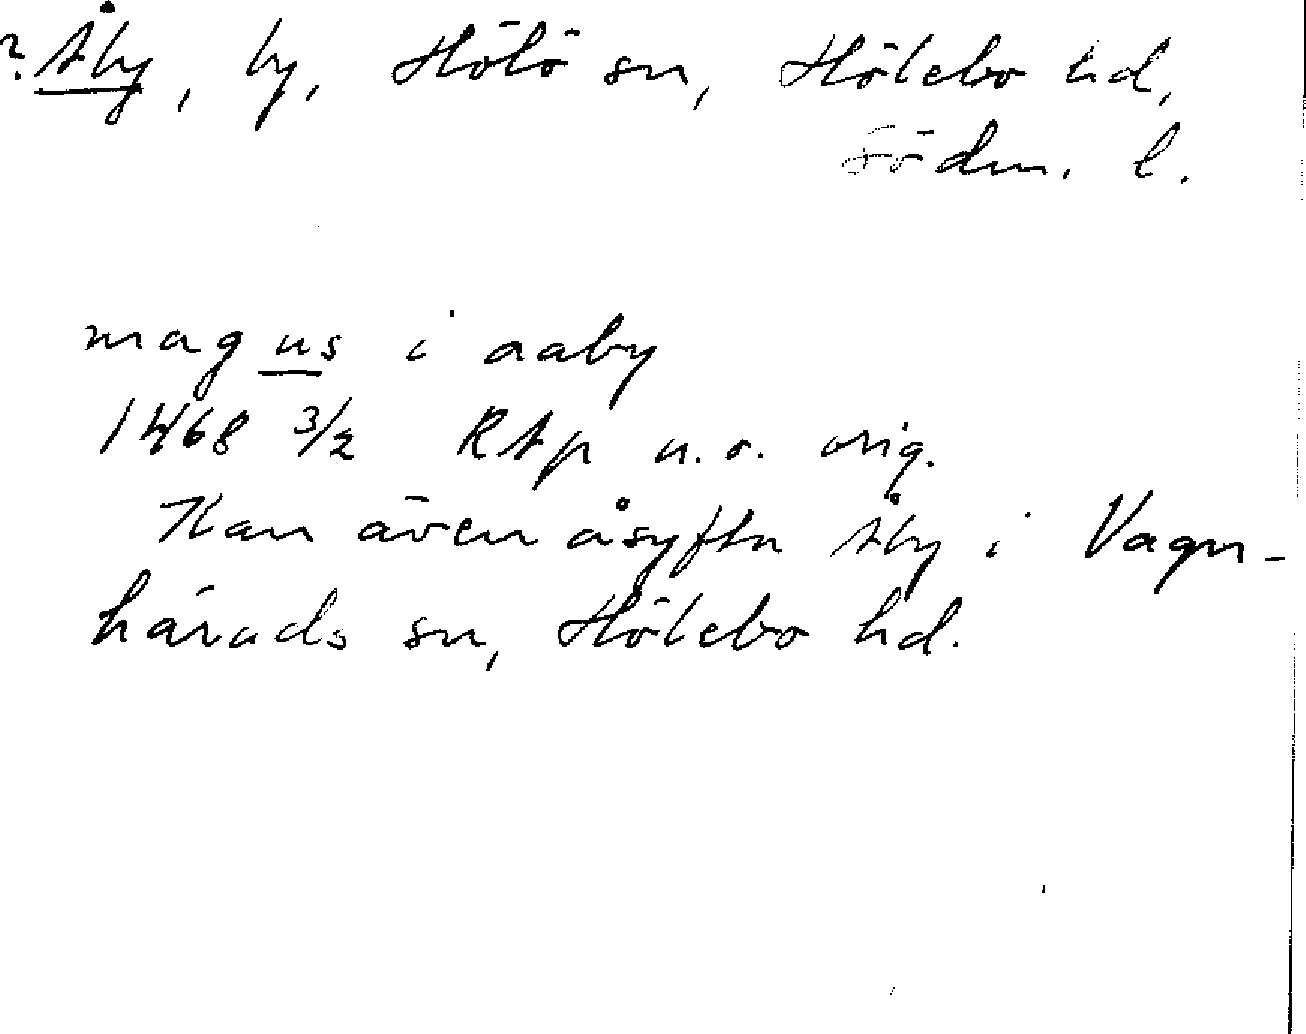 ? Åby, by, Hölö sn, Hölebo hd,
Södm. l.
magus i aaby
1468 3/2 RAp u.o. orig.
Kan även åsyfta Åby i Vagn-
härads sn, Hölebo hd.